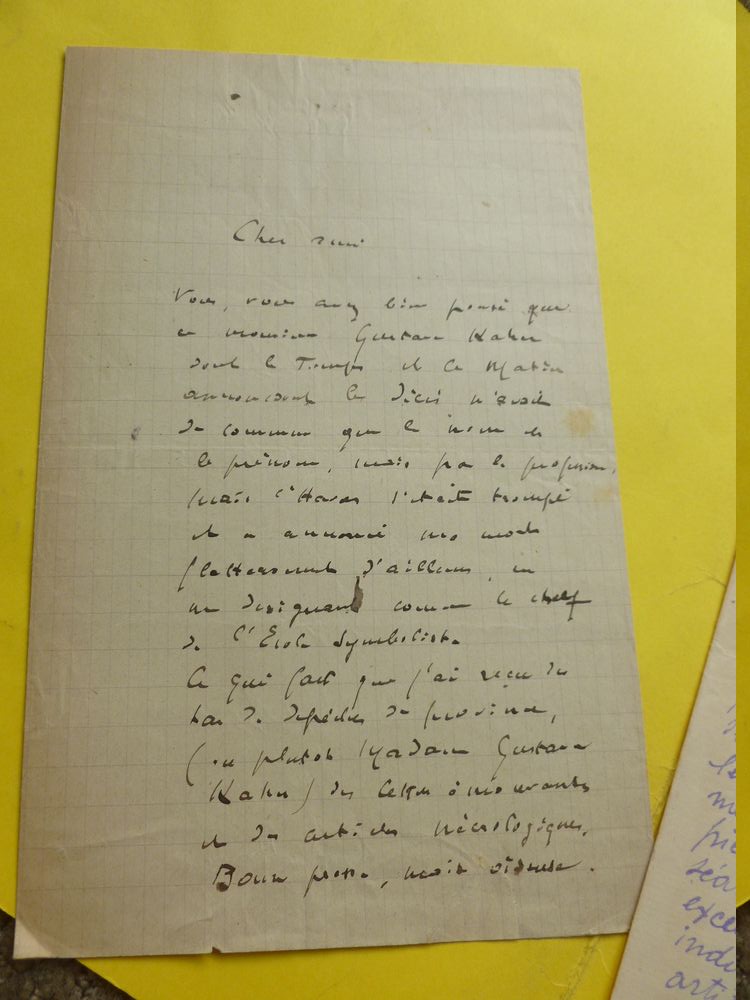 Cher ami
Vous, vous avez bien pensé que
ce monsieur Gustave Kahn
dont le Temps et le Matin
annoncent le décès n'avait
de commun que le nom et
le prénom, mais pas la profession,
mais l'Havas s'était trompé
et a annoncé ma mort
flatteusement d'ailleurs, en
me désignant comme le chef
de l'Ecole Symboliste
Ce qui fait que j'ai reçu des
tas de dépêches de province,
(ou plutôt Madame Gustave
Kahn) des lettres émouvantes
et des articles nécrologiques.
Bonne presse, mais oiseuse.
le
m
séa
exce
indu
arti